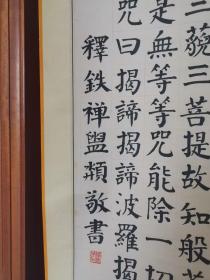 三藐三菩提故知般若
是無等等咒能除一切
咒曰揭諦揭諦波羅揭
釋鉄禅盥頮敬書